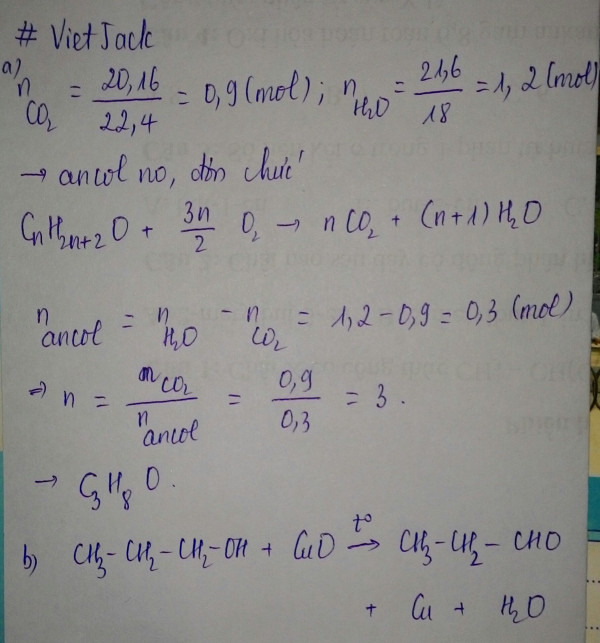 # VietJack
a) n CO₂ = 20,16 / 22,4 = 0,9 (mol) ; n H₂O = 21,6 / 18 = 1,2 (mol)
→ ancol no, đơn chức
CnH2n+2O + 3n/2 O₂ → n CO₂ + (n+1) H₂O
n ancol = n H₂O - n CO₂ = 1,2 - 0,9 = 0,3 (mol)
⇒ n = n CO₂ / n ancol = 0,9 / 0,3 = 3 .
→ C₃H₈O .
b) CH₃-CH₂-CH₂-OH + CuO t° → CH₃-CH₂-CHO
+ Cu + H₂O